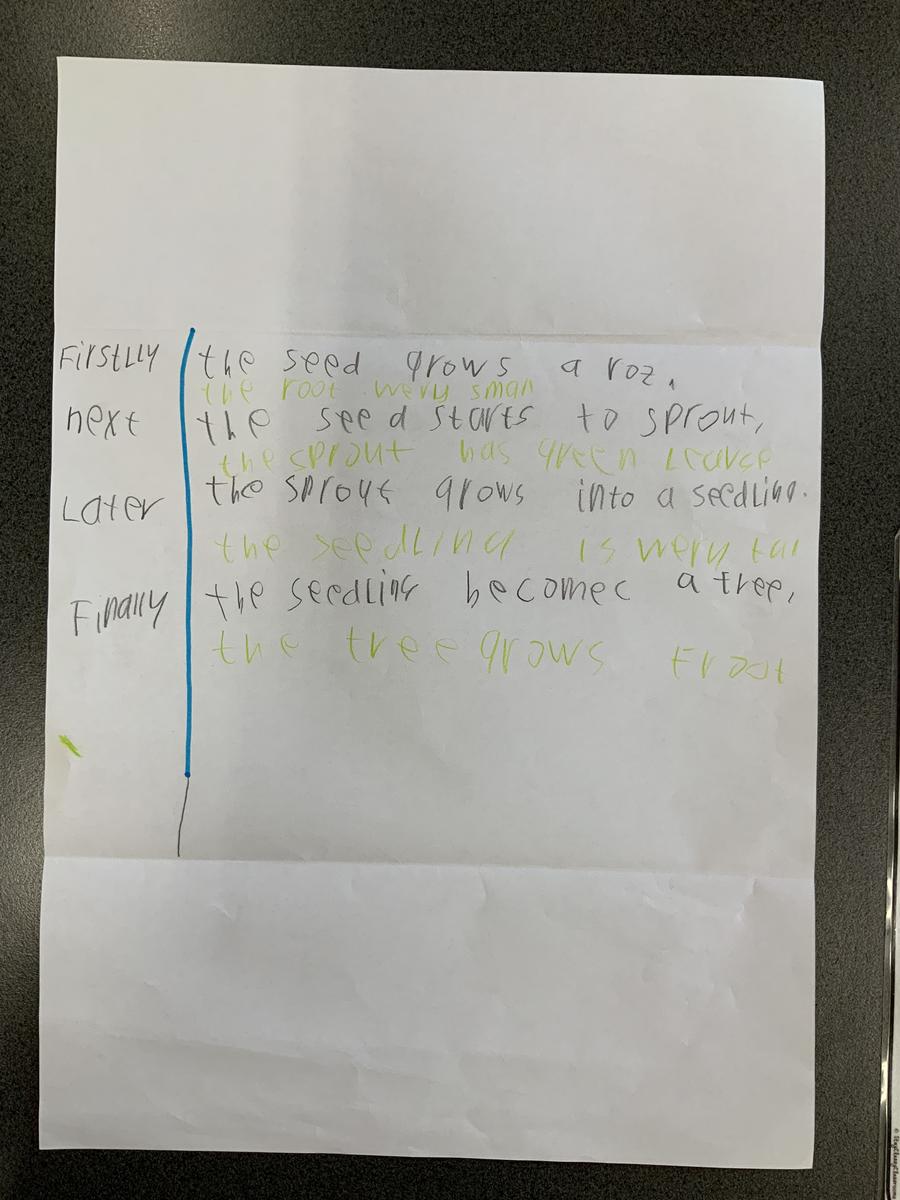 Firstlly the seed grows a roz.
the root wery sman
next the seed starts to sprout,
the sprout has green leavse
Later the sprout grows into a seedling.
the seedling is wery tal
Finally the seedling becomec a tree,
the tree grows Froot